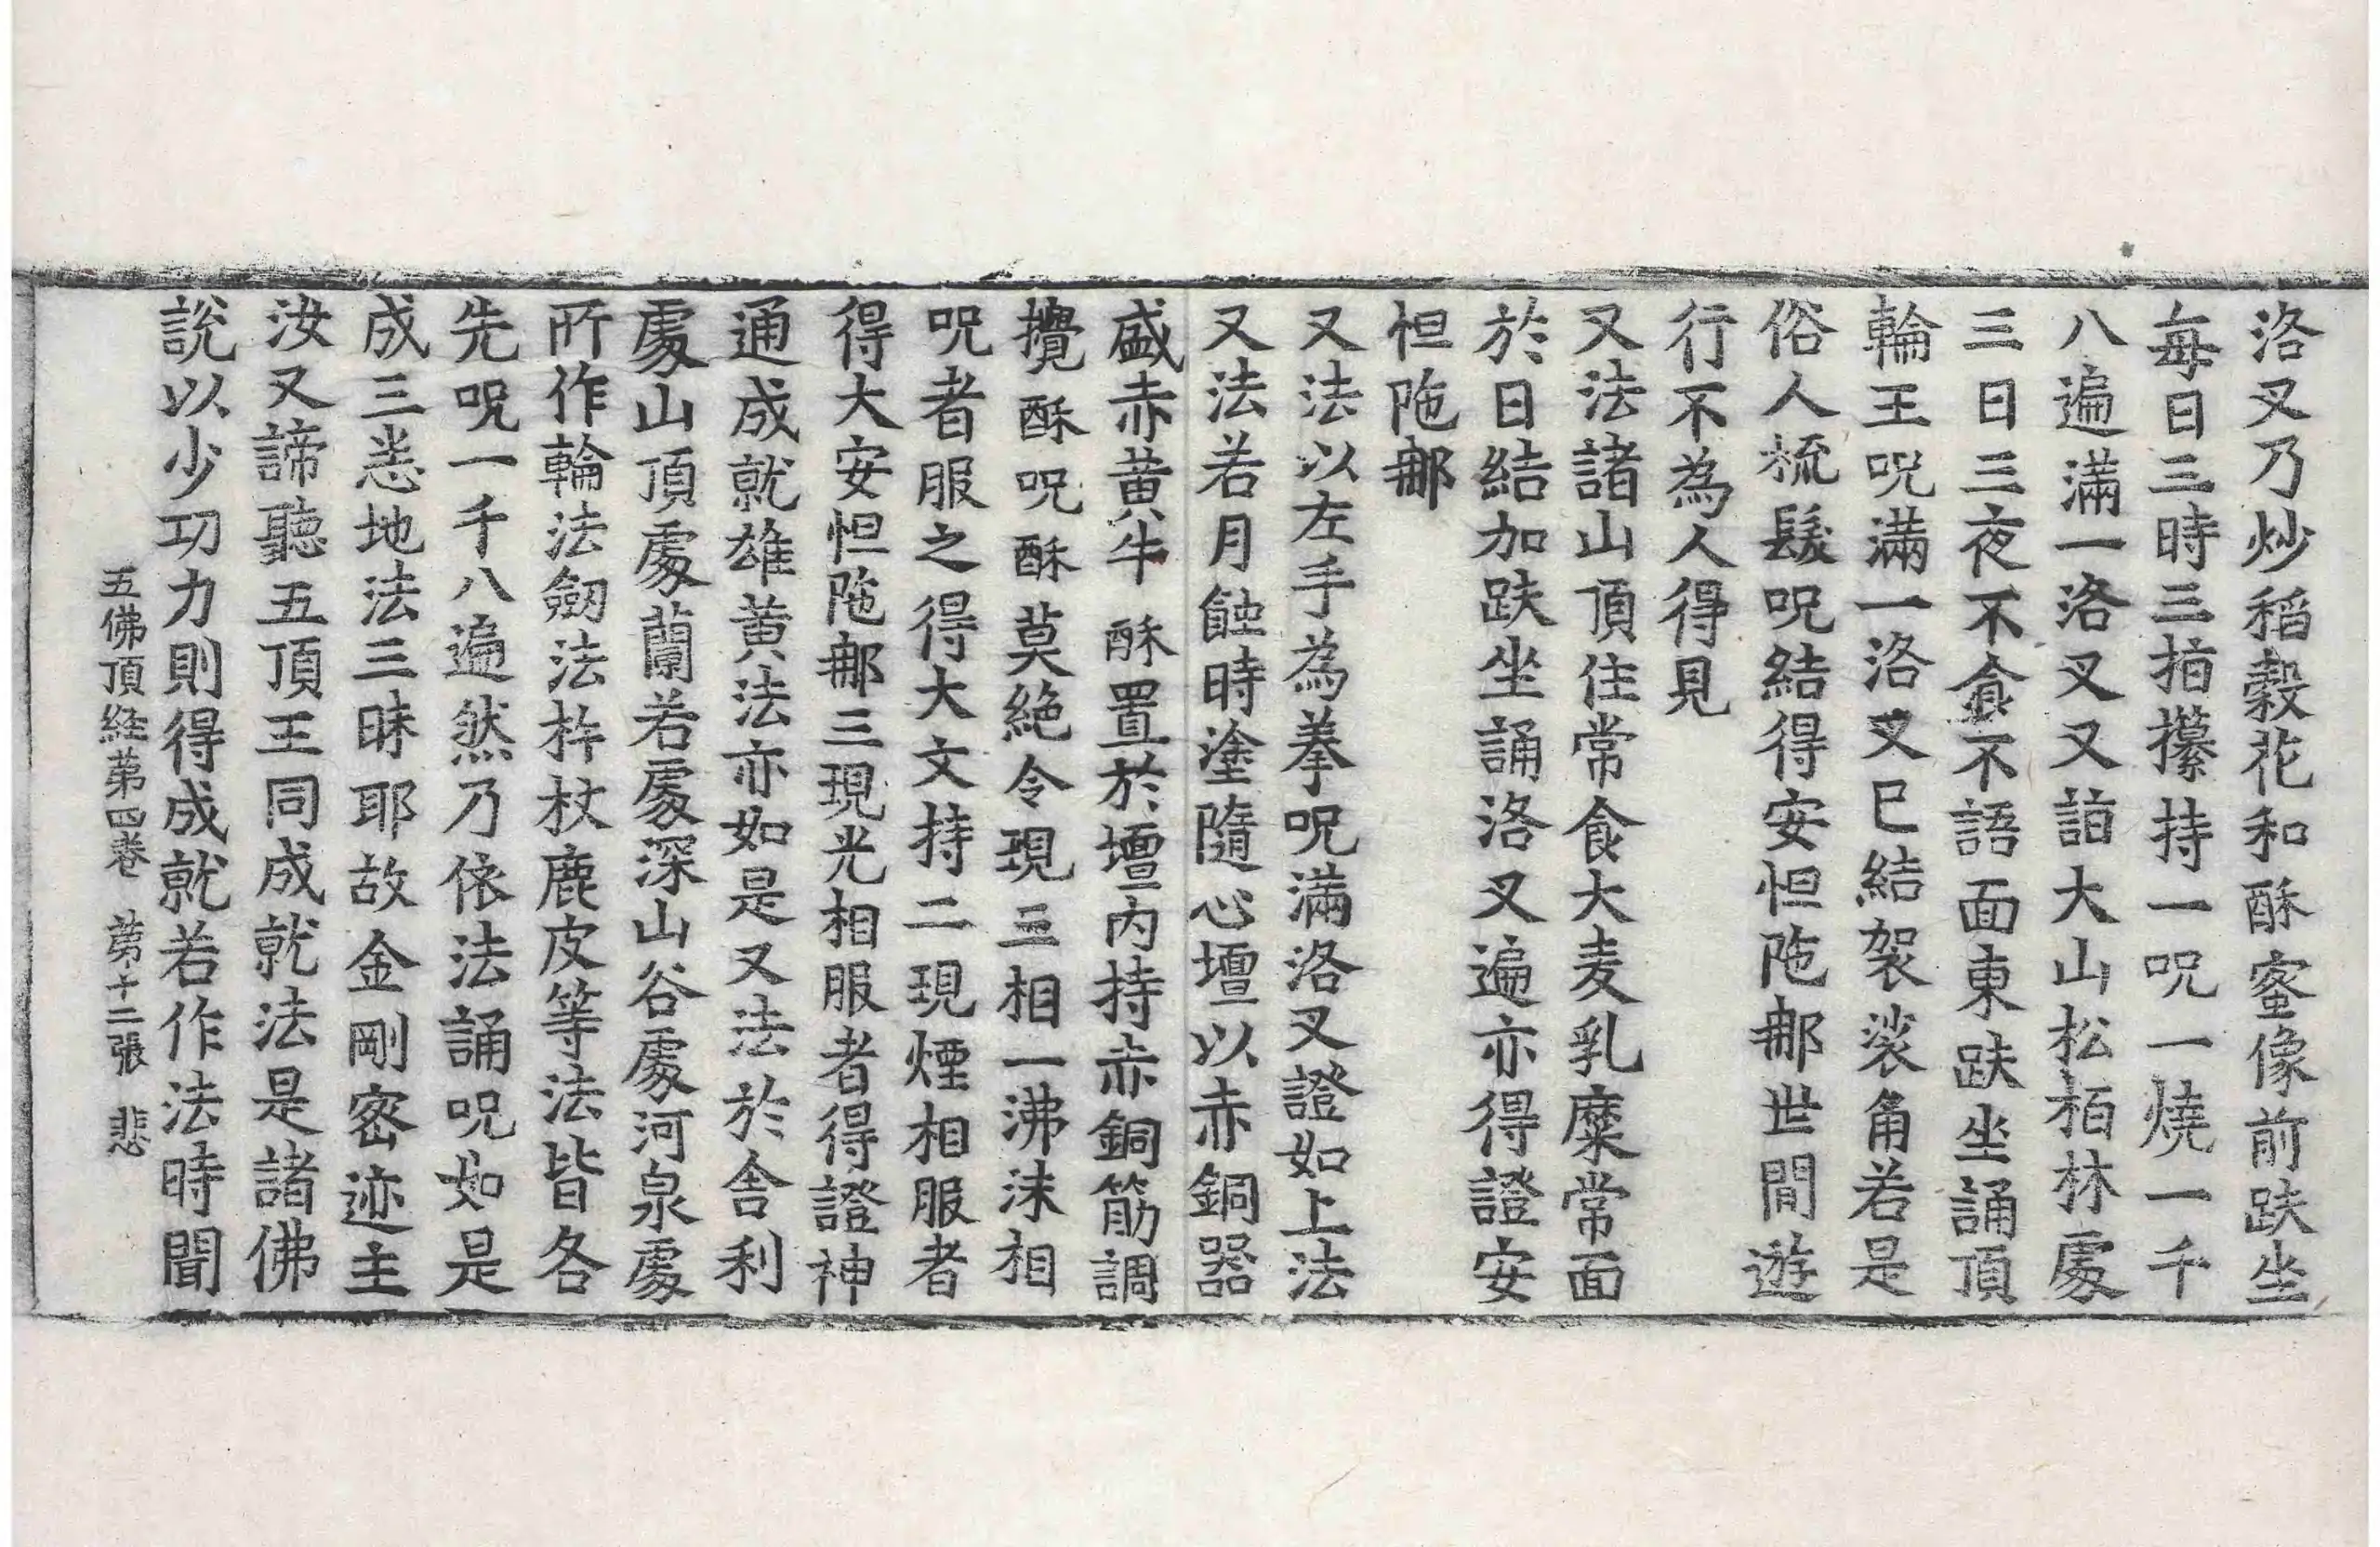 洛叉乃炒稻穀花和酥蜜像前趺坐
每日三時三指攥持一呪一燒一千
八遍滿一洛叉又詣大山松栢林處
三日三夜不食不語面東趺坐誦頂
輪王呪滿一洛叉已結袈裟角若是
俗人梳髮呪結得安怛陁那世間遊
行不為人得見
又法諸山頂住常食大麦乳糜常面
於日結加趺坐誦洛叉遍亦得證安
怛陁那
又法以左手為拳呪滿洛叉證如上法
又法若月蝕時塗隨心壇以赤銅器
盛赤黃牛酥置於壇內持赤銅筋調
攪酥呪酥莫絕令現三相一沸沫相
呪者服之得大文持二現煙相服者
得大安怛陁那三現光相服者得證神
通成就雄黃法亦如是又法於舍利
處山頂處蘭若處深山谷處河泉處
所作輪法劒法杵杖鹿皮等法皆各
先呪一千八遍然乃依法誦呪如是
成三悉地法三昧耶故金剛密迹主
汝又諦聽五頂王同成就法是諸佛
說以少功力則得成就若作法時聞
五佛頂経第四卷 第十二張 悲